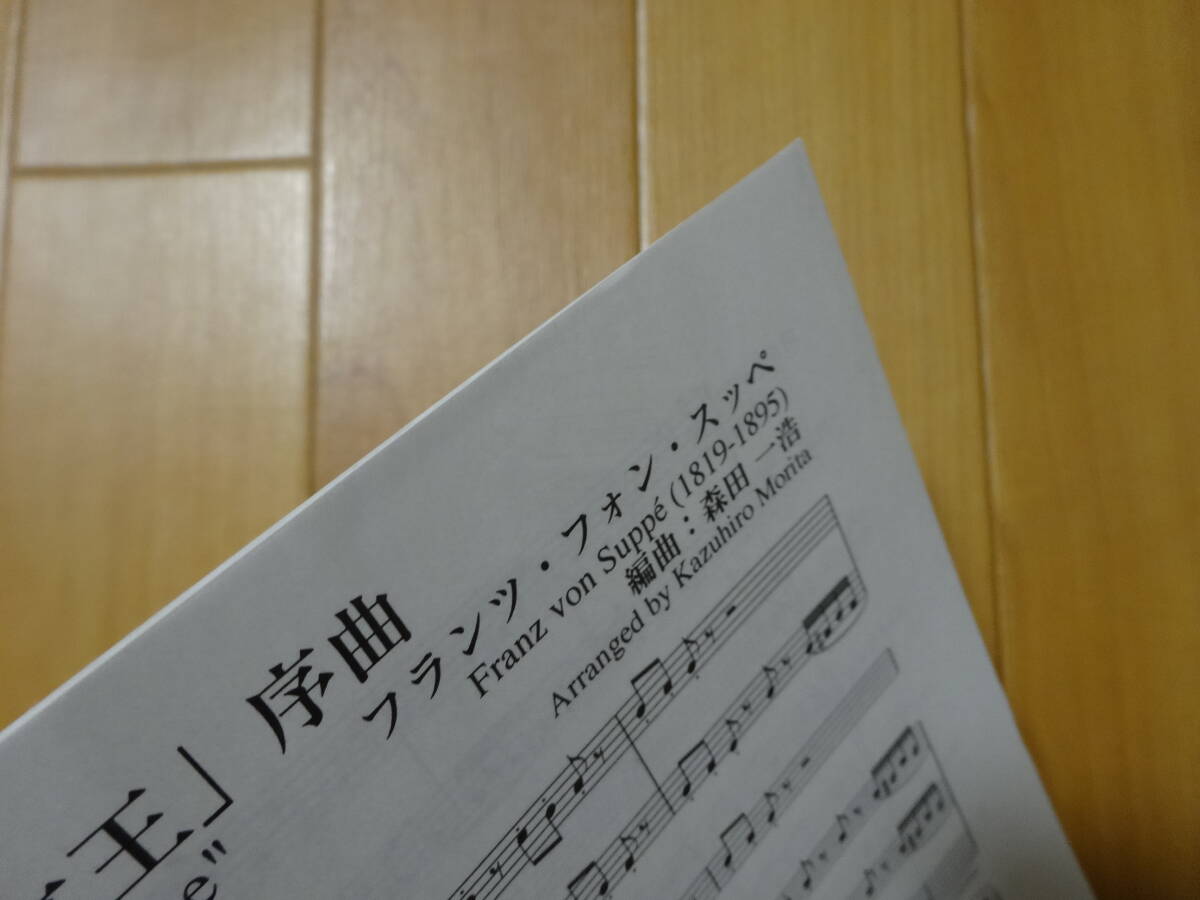 王」 序曲
e"
フランツ・フォン・スッペ
Franz von Suppé (1819-1895)
編曲：森田 一浩
Arranged by Kazuhiro Morita